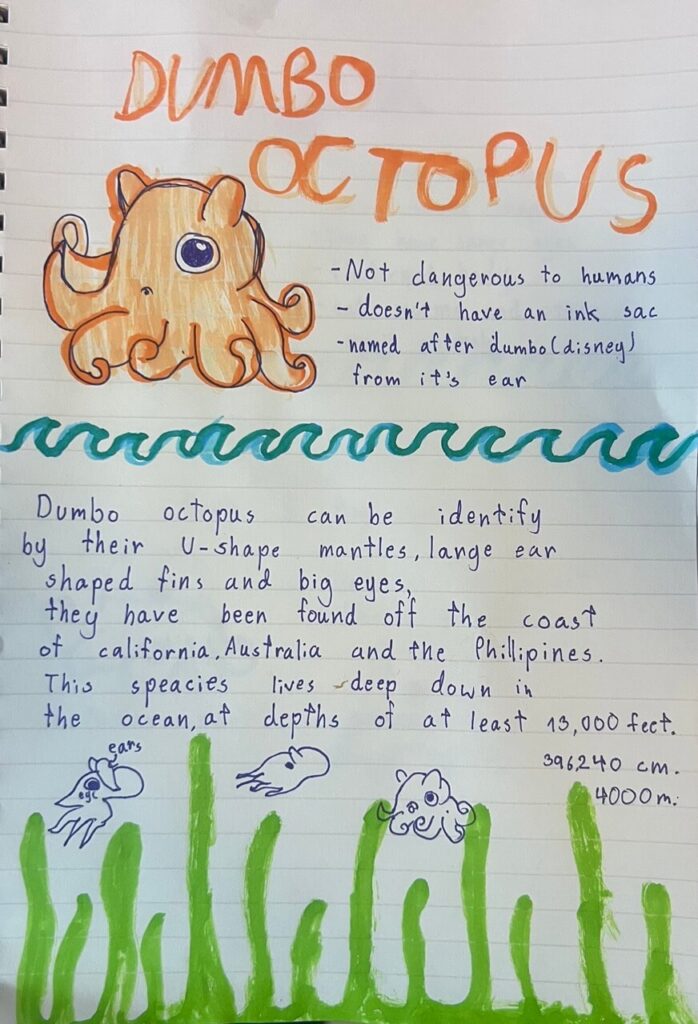 DUMBO
OCTOPUS
-Not dangerous to humans
- doesn't have an ink sac
-named after dumbo(disney)
from it's ear
Dumbo octopus can be identify
by their U-shape mantles, large ear
shaped fins and big eyes,
they have been found off the coast
of california, Australia and the Phillipines.
This speacies lives deep down in
the ocean, at depths of at least 13,000 feet.
396,240 cm.
4000 m.
ears
eye